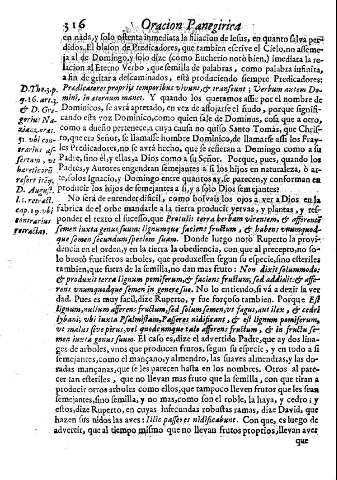 316 Oracion Panegirica
en nada, y solo ostenta inmediata la filiacion de Iesus, en quanto salva per-
didos. El blason de Predicadores, que tambien escrive el Cielo, no asseme-
ja al de Domingo, y solo dize (como Eucherio notò bien,) imediata la re-
lacion al Eterno Verbo, que semilla de palabras, como palabra infinita,
a fin de gritar a descaminados, està produciendo siempre Predicadores:
Predicatores proprijs temporibus vivunt, & transeunt; Verbum autem Do-
mini, in æternum manet. Y quando los queramos assir por el nombre de
Dominicos, se avrà apretado, en vez de afloxarse el ñudo, porque signifi-
cando esta voz Dominico, como quien sale de Dominus, cosa que a otro,
como a dueño pertenece, ya causa no quiso Santo Tomàs, que Chris-
to, que era Señor, se llamasse hombre Dominico, de llamarse assi los Fray-
les Predicadores, no se avrà hecho, que se refieran a Domingo como a su
Padre, sino èl, y ellas, a Dios como a su Señor. Porque, pues, quando los
Padres, y Autores engendran semejantes a si los hijos en naturaleza, ò ar-
te, solos Ignacio, y Domingo entre quantos ay, se parecen, y conforman en
producir los hijos de semejantes a si, y a solo Dios semejantes?
D. Tho. 3. p.
q. 16. art. 3.
& D. Gre-
gorius Na-
zianz. orat.
51. ubi con-
trarius as-
sertum, ut
hereticorũ
refert iste,
D. August.
l. 1. retract.
cap. 19. ubi
contrarius
retractas.
No serà de entender dificil, como bolvais los ojos a ver a Dios en la
fabrica de el orbe mandarle a la tierra producir yervas, y plantas, y res-
ponder el texto el sucesso, que Protulit terra herbam virentem, & afferentem
semen iuxta genus suum; lignumque faciens fructum, & habens unumquod-
que semen secundum speciem suam. Donde luego notò Ruperto la provi-
dencia en el orden, y en la tierra la obediencia, con que al precepto, no so-
lo brotò fructiferos arboles, que produxessen segun su especie, sino esteriles
tambien, que fuera de la semilla, no dan mas fruto: Non dixit solummodo:
& produxit terra lignum pomiferum, & faciens fructum, sed addidit: & affe-
rens unumquodque semen in genere suo. No lo se pondo, si và a dezir la ver
dad. Pues es muy facil, dize Ruperto, y sue forçoso tambien. Porque Est
lignum, nullum afferens fructum, sed solum semen, ut fagus, aut ilex, & cedri
Lybani; ubi iuxta Psalmistam, Passeres nidificant, & est lignum pomiferum,
ut malus sive pirus, vel quodcumque tale afferens fructum, & in fructu se-
men iuxta genus suum. El caso es, dize el advertido Padre, que ay dos lina-
ges de arboles, unos que producen frutos, segun su especie, y en todo a si
semejantes, como el mançano, y almendro, las suaves almendras, y las do-
radas mançanas, que se les parecen hasta en los nombres. Otros al pare-
cer tan esteriles, que no llevan mas fruto que la semilla, con que tiran a
producir otros arboles como ellos, que tampoco lleven frutos que les sean
semejantes, sino semilla, y no mas, como son el roble, la haya, y cedro; y
estos, dize Ruperto, en cuyas infecundas robustas ramas, dize David, que
hazen sus nidos las aves: Illic passeres nidificabunt. Con que, es luego de
advertir, que al tiempo mismo que no llevan frutos proprios, llevan aver
que